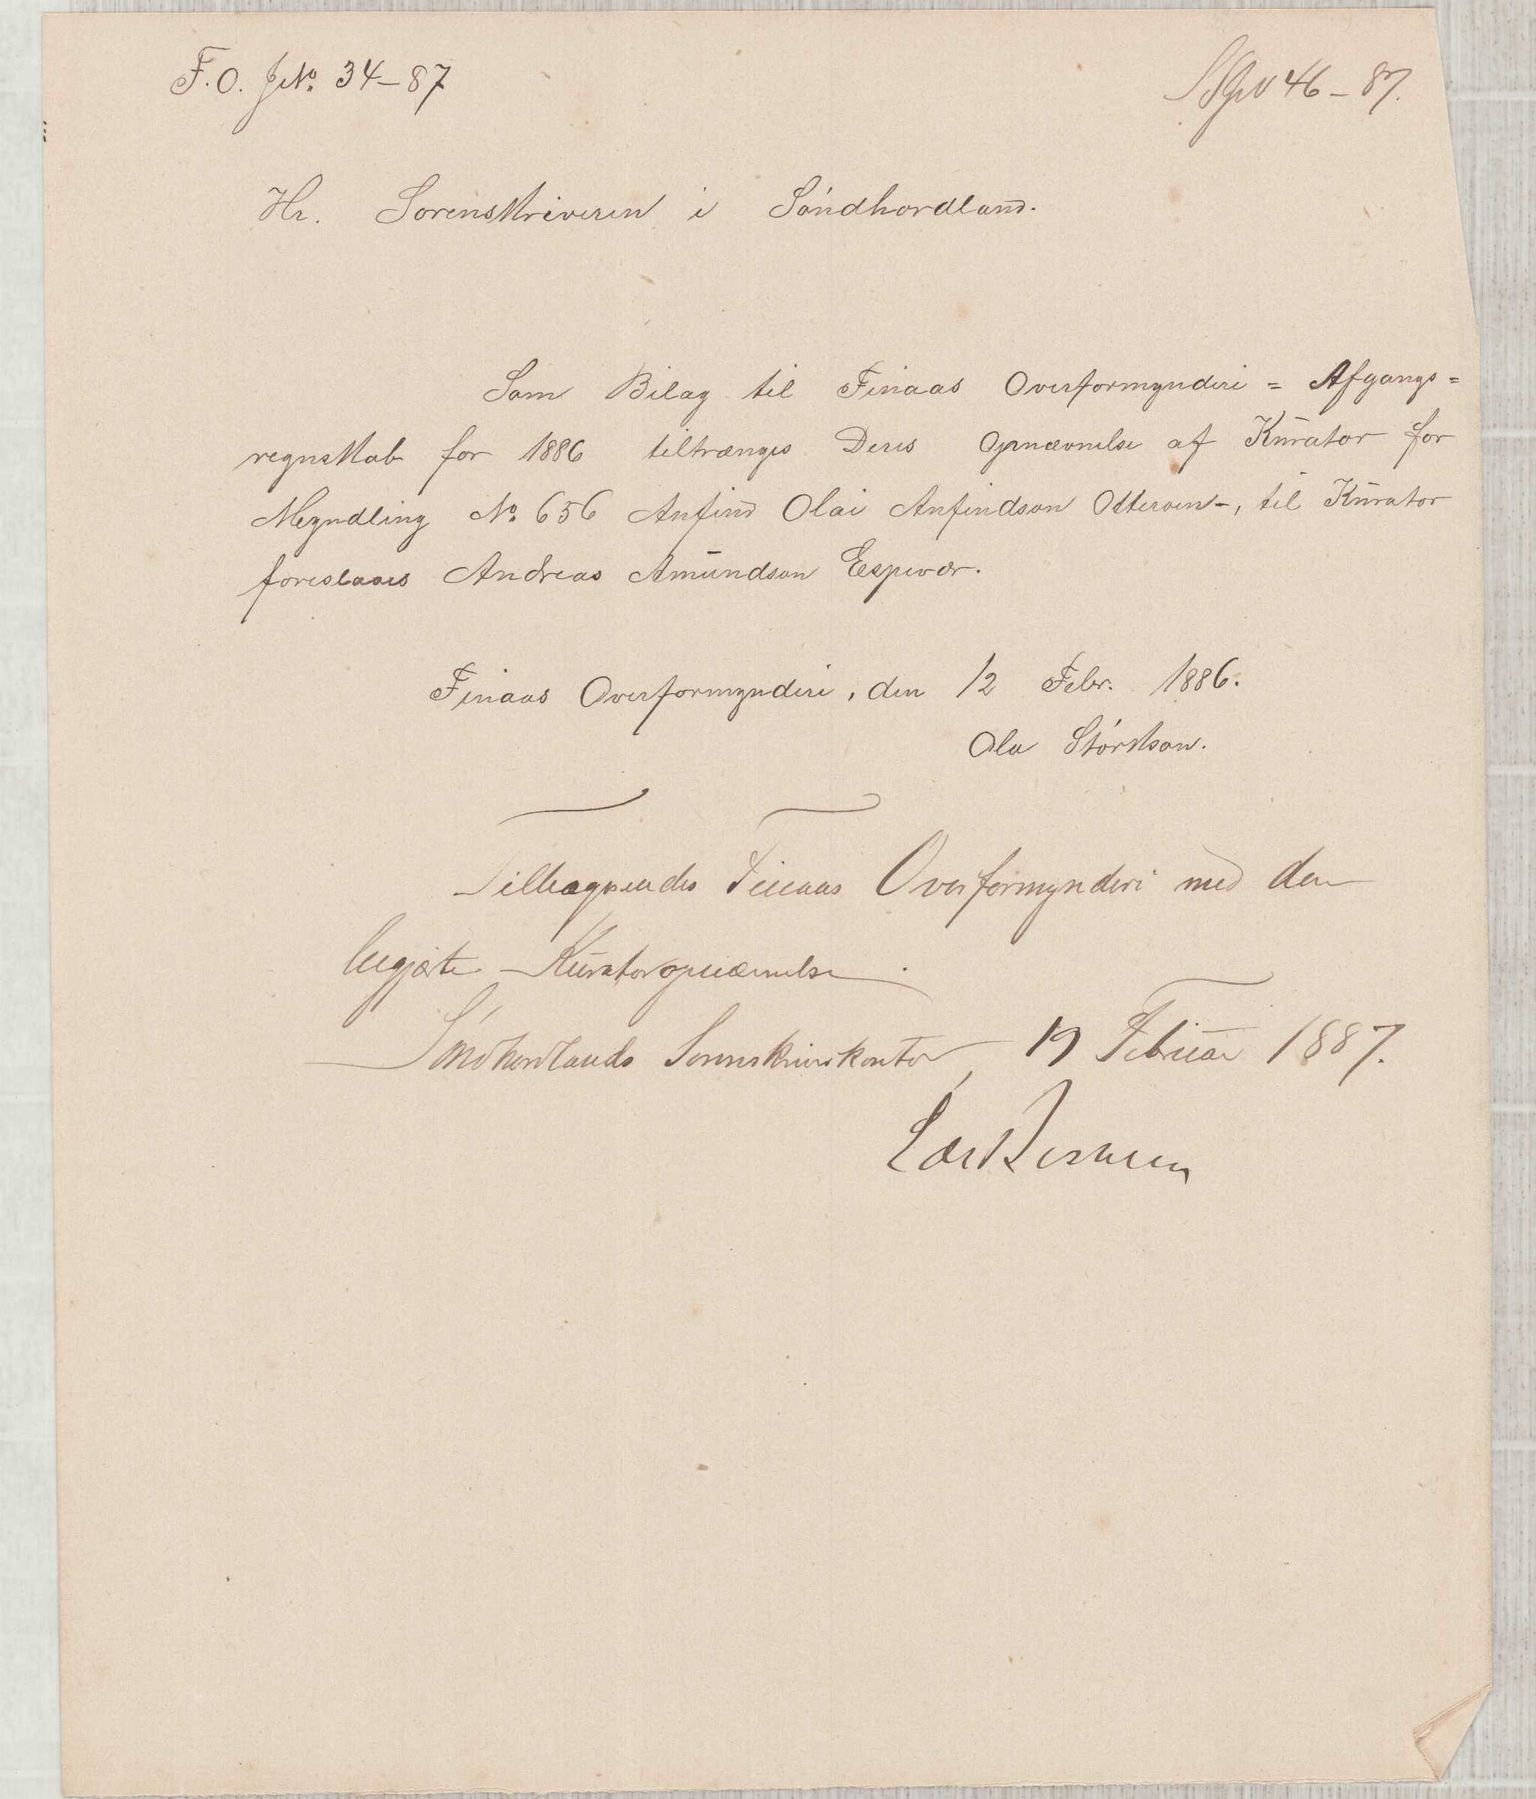 F. O. JNo. 34-87
46-87.
Hr. Sorenskriveren i Søndhordland.
Som Bilag til Finaas Overformynderi = Afgangs=
regnskab for 1886 tiltrænges Deres Opnævnelse af Kurator for
Myndling No. 656 Anfind Olai Anfindson Otterøen -, til Kurator
foreslaaes Andreas Amundson Espevær.
Finaas Overformynderi, den 12 Febr. 1886.
Ola Størkson.
Tilbagesendes Finaas Overformynderi med den
begjærte Kuratoropnævnelse.
Søndhordlands Sorenskriverkontor, 19 Februar 1887.